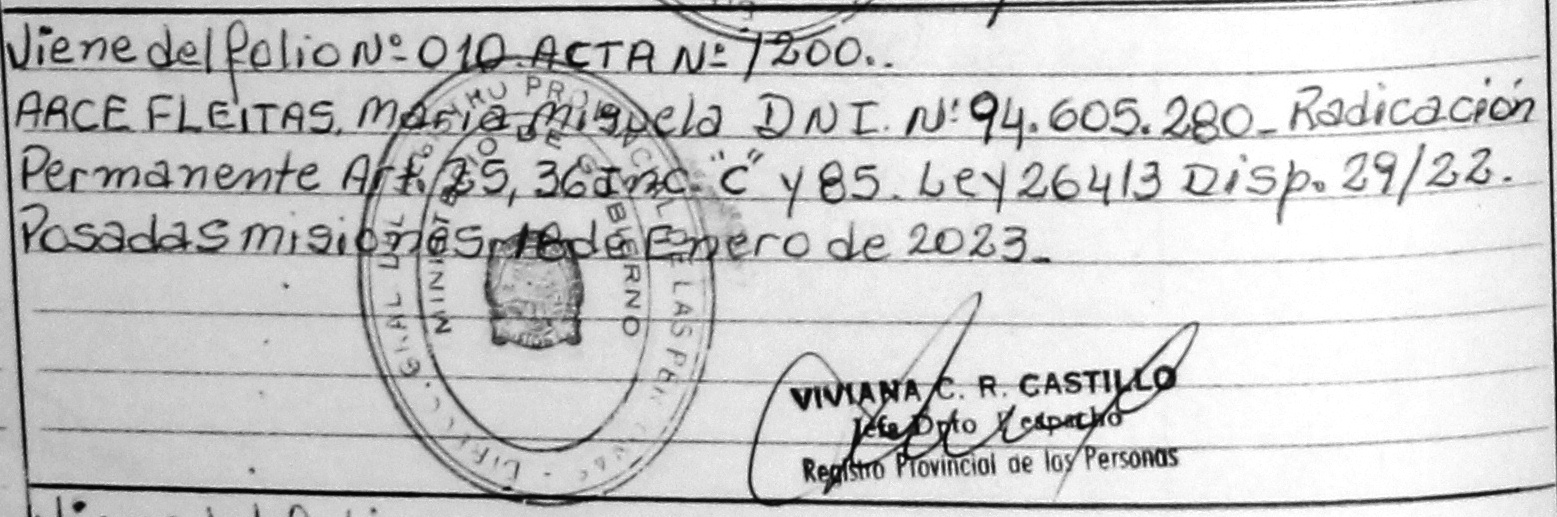 Viene del folio Nº 010. ACTA Nº 1200..
ARCE FLEITAS, Maria Miguela DNI. Nº 94.605.280_ Radicación
Permanente Art. 25, 36 Inc. "C" y 85. Ley 26413 Disp. 29/22.
Posadas misiones, de Enero de 2023_
MINISTERIO DE GOBIERNO
VIVIANA C. R. CASTILLO
Jefe Dpto Despacho
Registro Provincial de las Personas